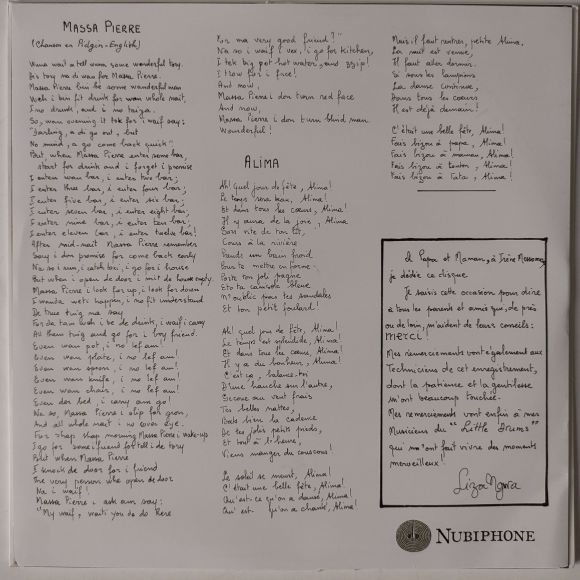 MASSA PIERRE
(Chanson en Pidgin-English)
Wuna wait a tell wuna some wonderful tory.
Dis tory na di wan for Massa Pierre.
Massa Pierre bin be some wonderful man
Weh i bin fit drink for wan whole nait,
I no drunk, and i no taiga.
So, wan evening i tok for i waif say:
"Darling, a di go out, but
No mind, a go come back quick"
But, when Massa Pierre enter some bar,
start for drink and i forget i promise
I enter wan bar, i enter two bar;
I enter three bar, i enter four bar;
I enter five bar, i enter six bar;
I enter seven bar, i enter eight bar;
I enter nine bar, i enter ten bar;
I enter eleven bar, i enter twelve bar!
After mid-nait Massa Pierre remember
Say i don promise for come back early
Na so i run, i catch taxi, i go for i house
But when i open de door i mit de house empty
Massa Pierre i look for up, i look for down
I wanda weti happen, i no fit understand
De true ting ma say
For da taim weh i be de drink, i waif i carry
All them ting and go for i boy friend.
Even wan pot, i no lef am!
Even wan plate, i no lef am!
Even wan spoon, i no lef am!
Even wan knife, i no lef am!
Even wan chair, i no lef am!
Even dea bed, i carry am go!
Na so, Massa Pierre i slip for gron,
And all whole nait i no cover eye.
For shap shap morning Massa Pierre i wake-up
I go for some i friend for tell i de tory
But when Massa Pierre
I knock de door for i friend
The very person who open de door
Na i waif!
Massa Pierre i ask am say:
"My waif, waiti you de do here
For ma very good friend?"
Na so i waif i vex, i go for kitchen,
I tek big pot hot water, and zzzip!
I trow for i face!
And now,
Massa Pierre i don turn red face
And now,
Massa Pierre i don turn blind man
Wonderful!
ALIMA
Ah! Quel jour de fête, Alima!
Le temps sera beau, Alima!
Et dans tous les cœurs, Alima!
Il y aura de la joie, Alima!
Sors vite de ton lit,
Cours à la rivière
Prends un bain froid
Pour te mettre en forme.
Mets ton joli pagne
Et ta camisole bleue
N'oublie pas tes sandales
Et ton petit foulard!
Ah! quel jour de fête, Alima!
Le temps est splendide, Alima!
Et dans tous les cœurs, Alima!
Il y a du bonheur, Alima!
C'est ça, balance-toi
D'une hanche sur l'autre,
Secoue au vent frais
Tes belles nattes,
Bats bien la cadence
De tes jolis petits pieds,
Et tout à l'heure,
Viens manger du couscous!
Le soleil se meurt, Alima!
C'était une belle fête, Alima!
Qu'est-ce qu'on a dansé, Alima!
Qu'est- qu'on a chanté, Alima!
Mais il faut rentrer, petite Alima,
La nuit est venue,
Il faut aller dormir.
Si sous les lampions
La danse continue,
Dans tous les cœurs
Il est déjà demain!
C'était une belle fête, Alima!
Fais bizou à papa, Alima!
Fais bizou à maman, Alima!
Fais bizou à tonton, Alima!
Fais bizou à Tata, Alima!
A Papa et Maman, à Irène Messomo,
je dédie ce disque.
Je saisis cette occasion pour dire
à tous les parents et amis qui, de près
ou de loin, m'aident de leurs conseils:
merci!
Mes remerciements vont également aux
Techniciens de cet enregistrement,
dont la patience et la gentillesse
m'ont beaucoup touchée.
Mes remerciements vont enfin à mes
Musiciens du "Little Drums"
qui m'ont fait vivre des moments
merveilleux!
NUBIPHONE